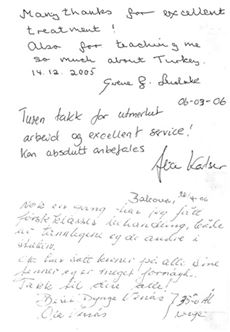 Many thanks for excellent
treatment!
Also for teaching me
so much about Turkey.
14.12.2005
06-03-06
Tusen takk for utmerket
arbeid og excellent service!
Kan absolutt anbefales
Balcova,
Nok en gang har jeg fått
førsteklasses behandling, både
av tannlegene og de andre i
staben.
De har satt kroner på alle mine
tenner og er meget fornøgd.
Takk til dere alle!